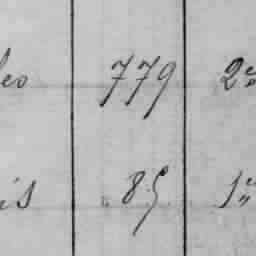 les 779 2e
is 85 1e